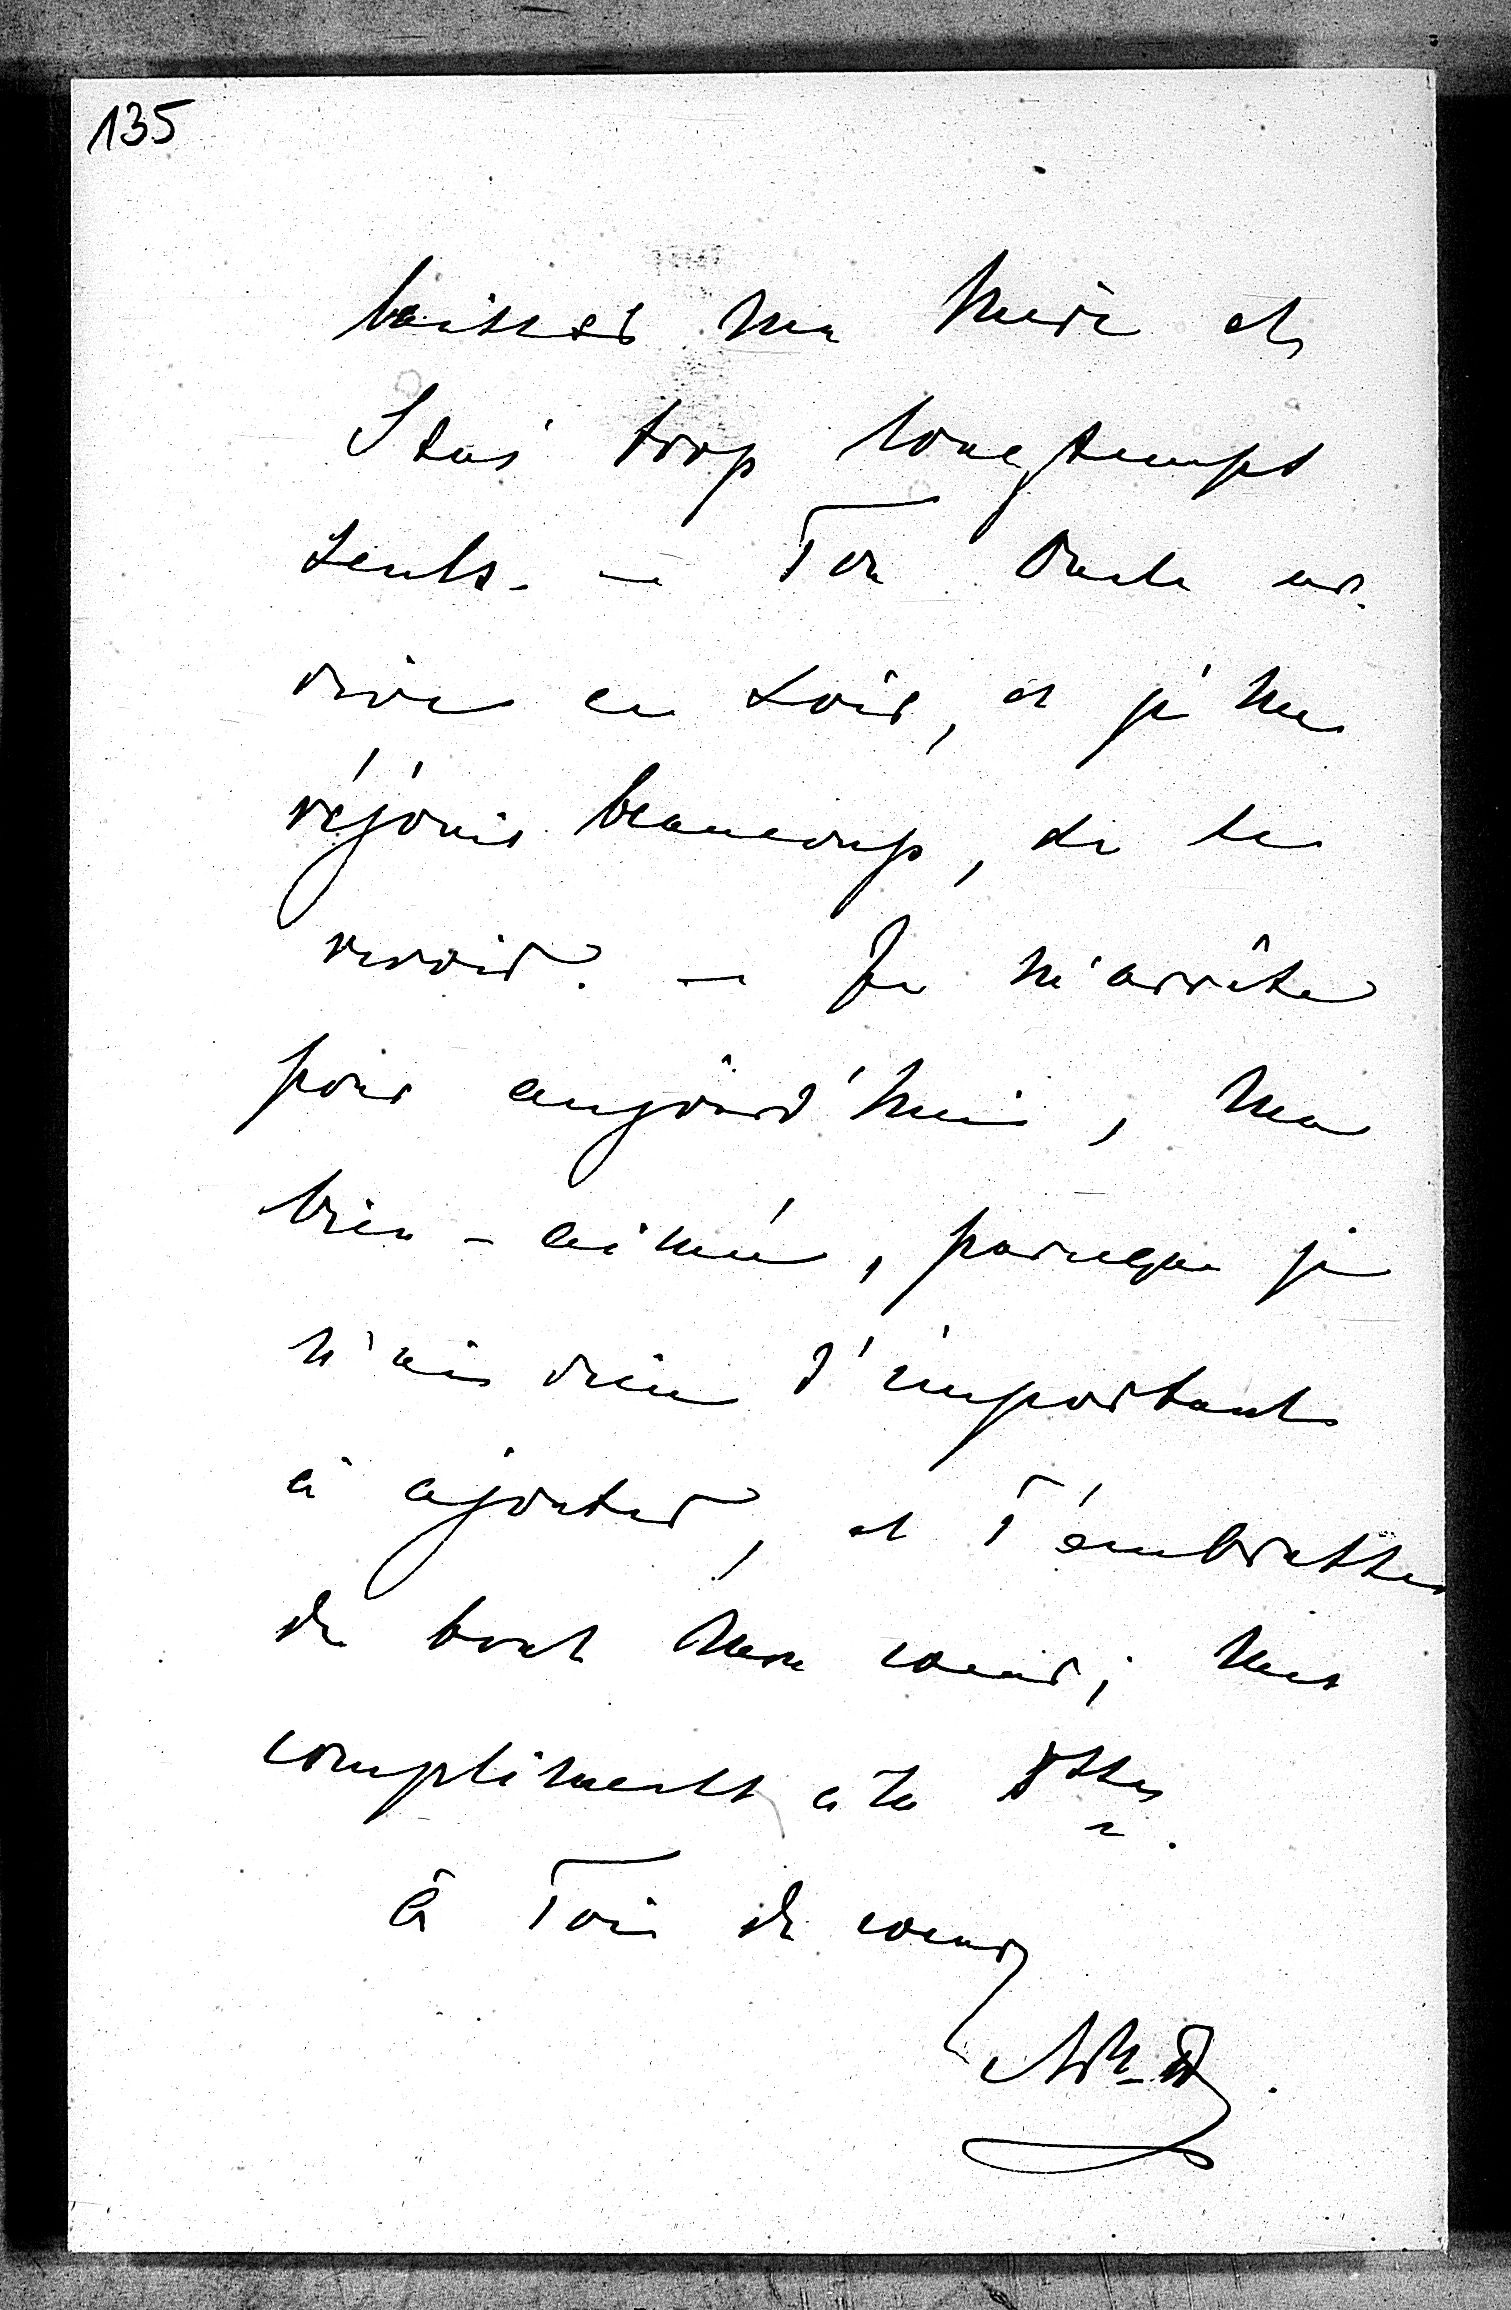 135
laisser ma mère et
Stas' trop longtemps
seuls. — Ton Oncle ar-
rive ce soir, et je me
réjouis beaucoup, de le
revoir. — Je m'arrête
pour aujourd'hui, ma
bien-aimée, parceque je
n'ai rien d'important
à ajouter, et T'embrasse
de tout mon coeur; mes
compliments à ta
à Toi de coeur